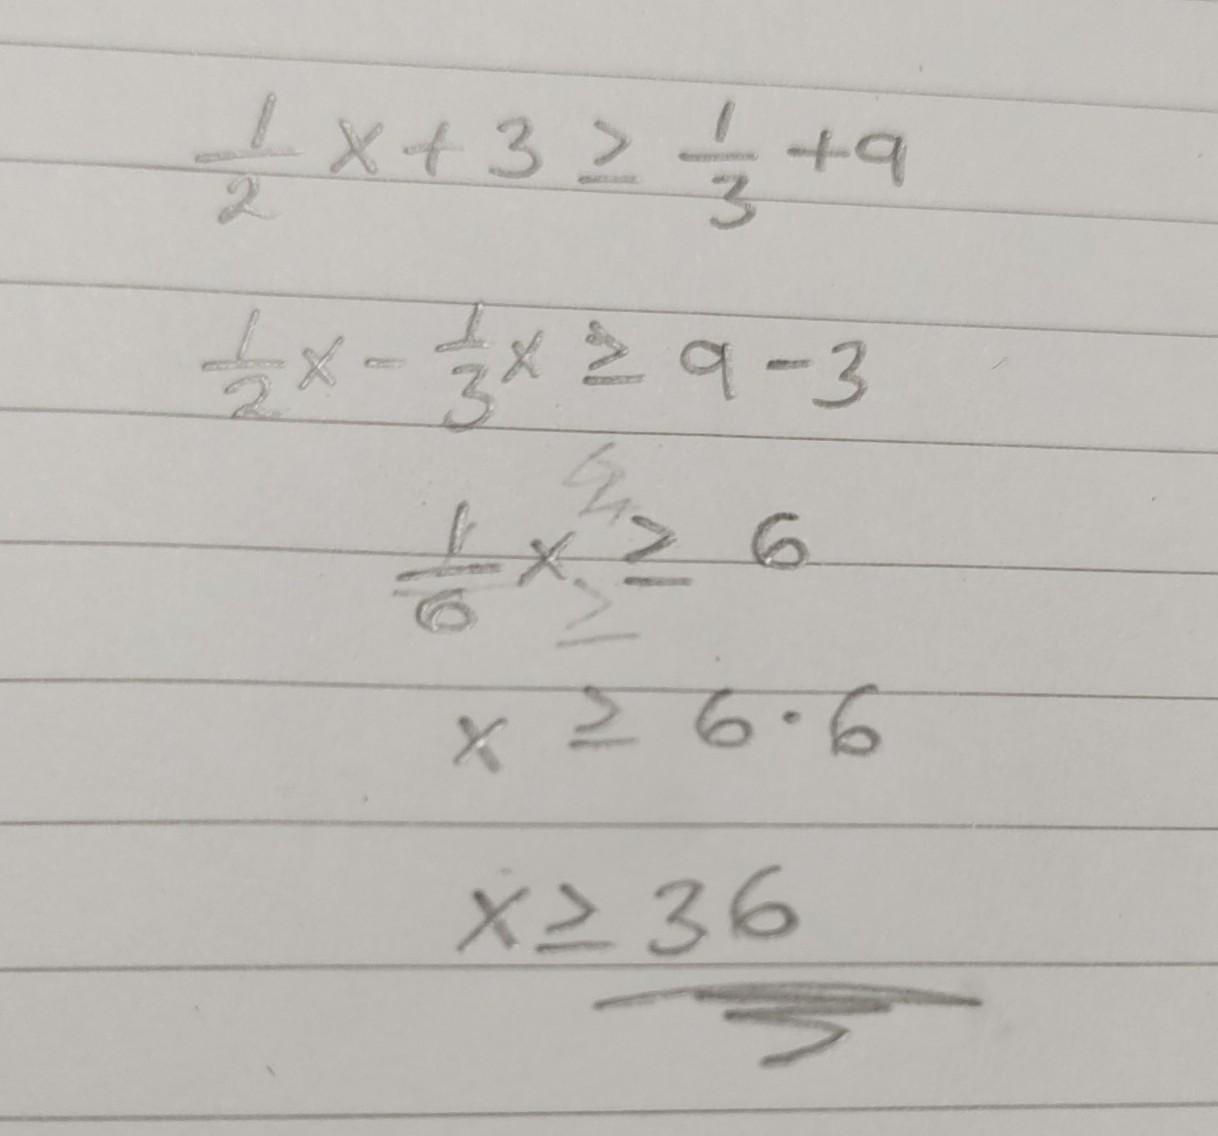 1/2 x + 3 ≥ 1/3 + 9
1/2 x - 1/3 x ≥ 9 - 3
1/6 x ≥ 6
x ≥ 6 · 6
x ≥ 36